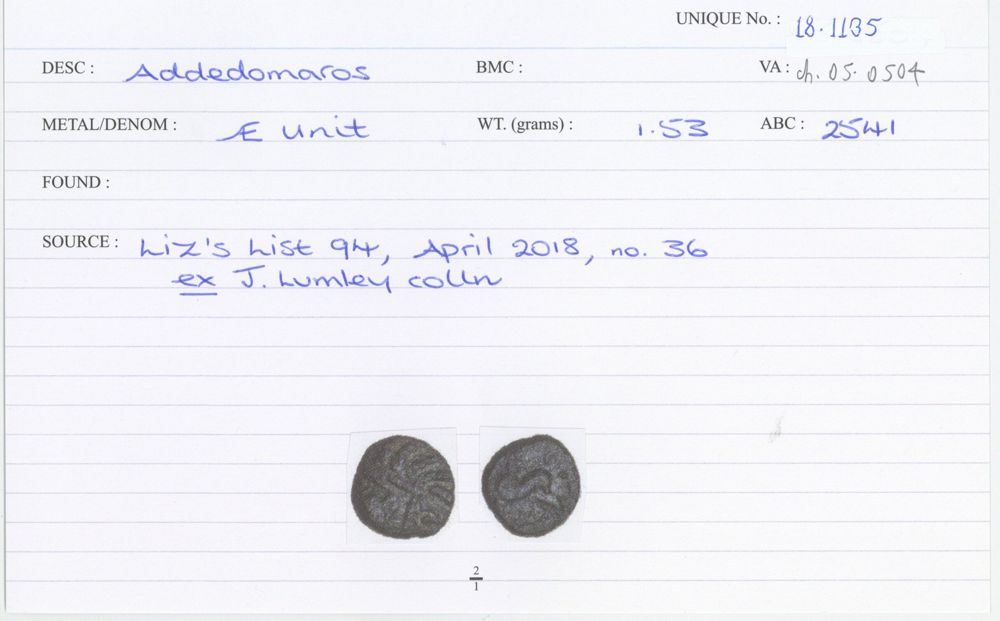 UNIQUE No. : 18.1135
DESC : Addedomaros BMC : VA : ch. 05. 0504
METAL/DENOM : Æ unit WT. (grams) : 1.53 ABC : 2541
FOUND :
SOURCE : Liz's List 94, April 2018, no. 36
ex J. Lumley colln
2
1